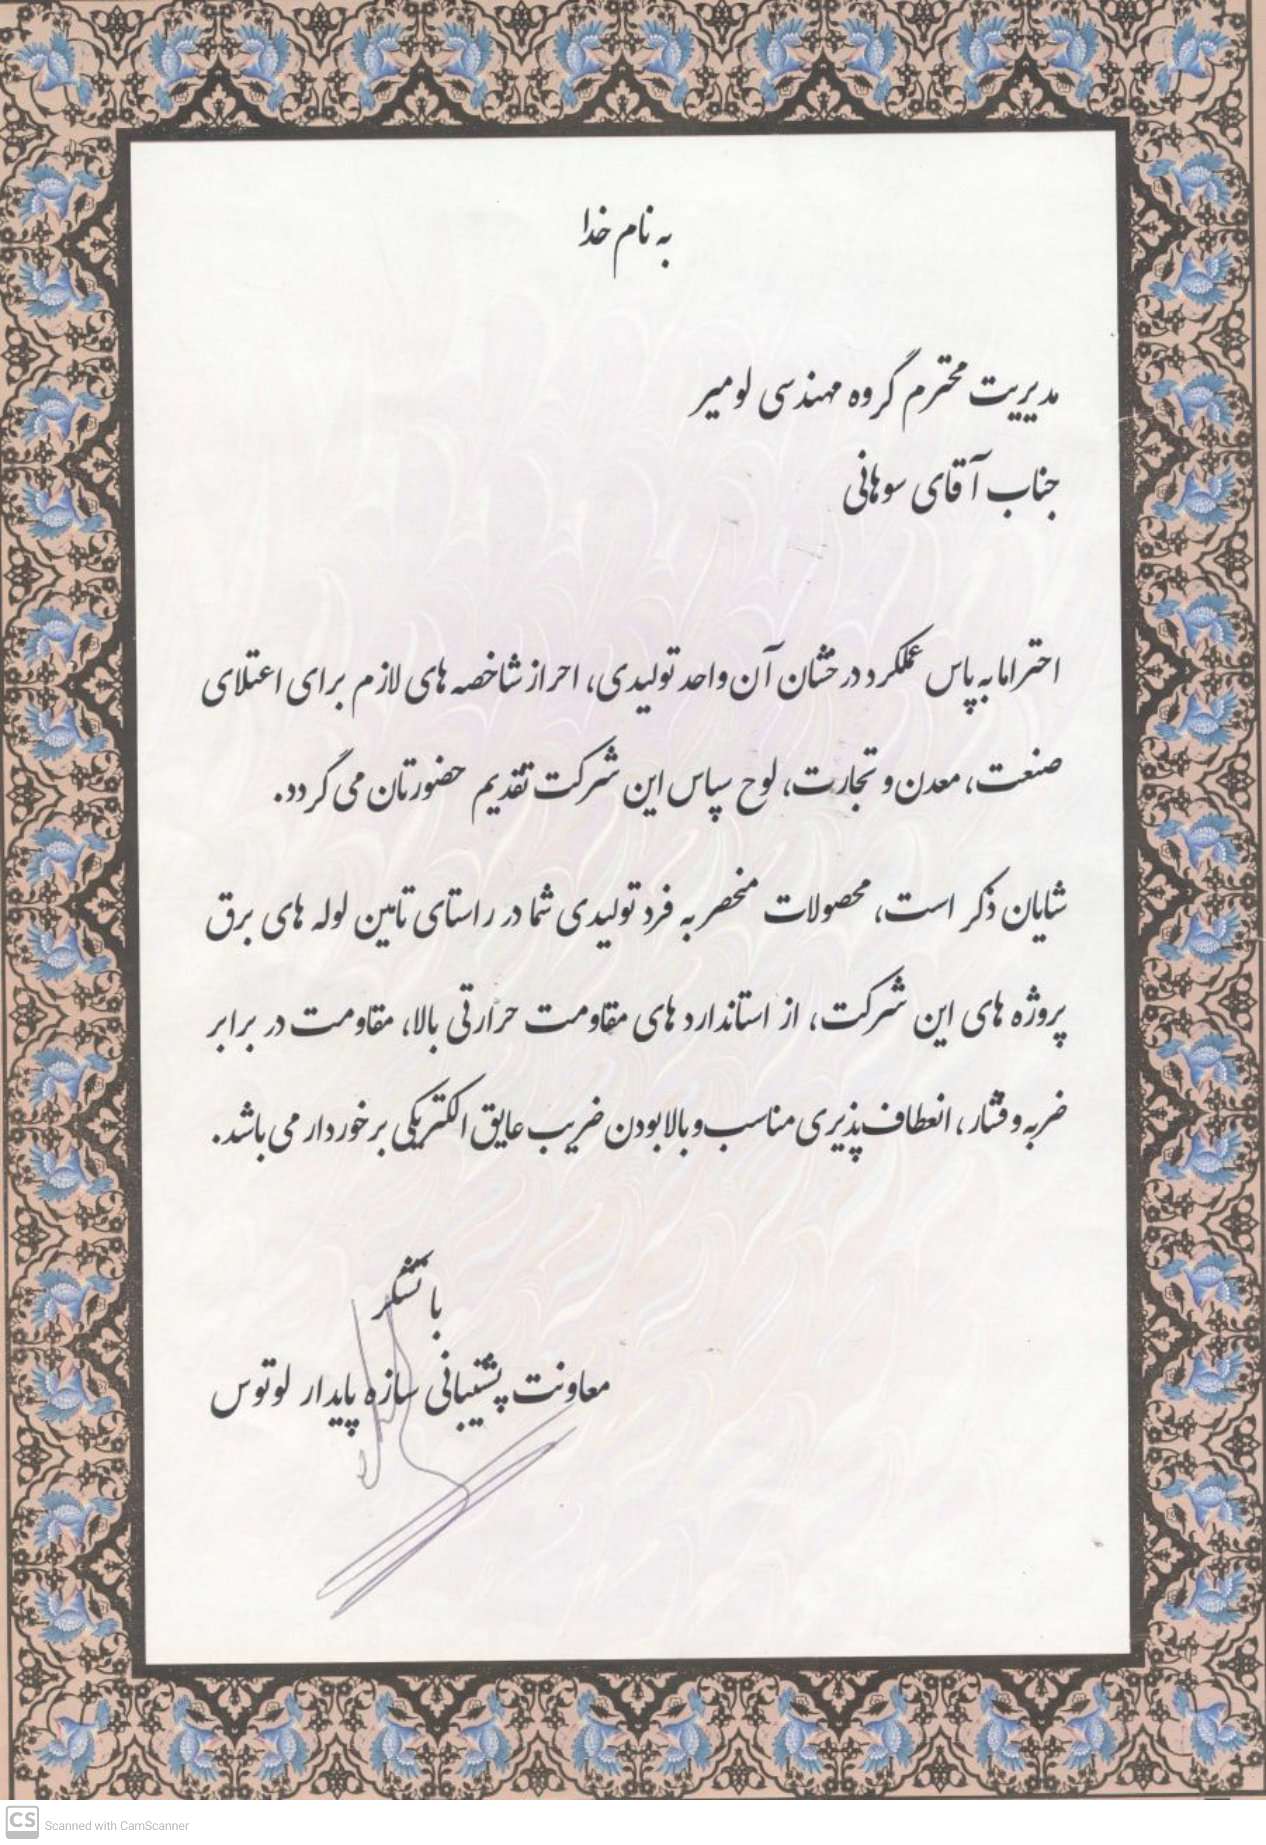 به نام خدا
مدیریت محترم گروه مهندسی لومیر
جناب آقای سوهانی
احتراما به پاس عملکرد درخشان آن واحد تولیدی، احراز شاخصه های لازم برای اعتلای
صنعت، معدن و تجارت، لوح سپاس این شرکت تقدیم حضورتان می گردد.
شایان ذکر است، محصولات منحصر به فرد تولیدی شما در راستای تامین لوله های برق
پروژه های این شرکت، از استاندارد های مقاومت حرارتی بالا، مقاومت در برابر
ضربه و فشار، انعطاف پذیری مناسب و بالا بودن ضریب عایق الکتریکی برخوردار می باشد.
با تشکر
معاونت پشتیبانی سازه پایدار لوتوس
CS Scanned with CamScanner